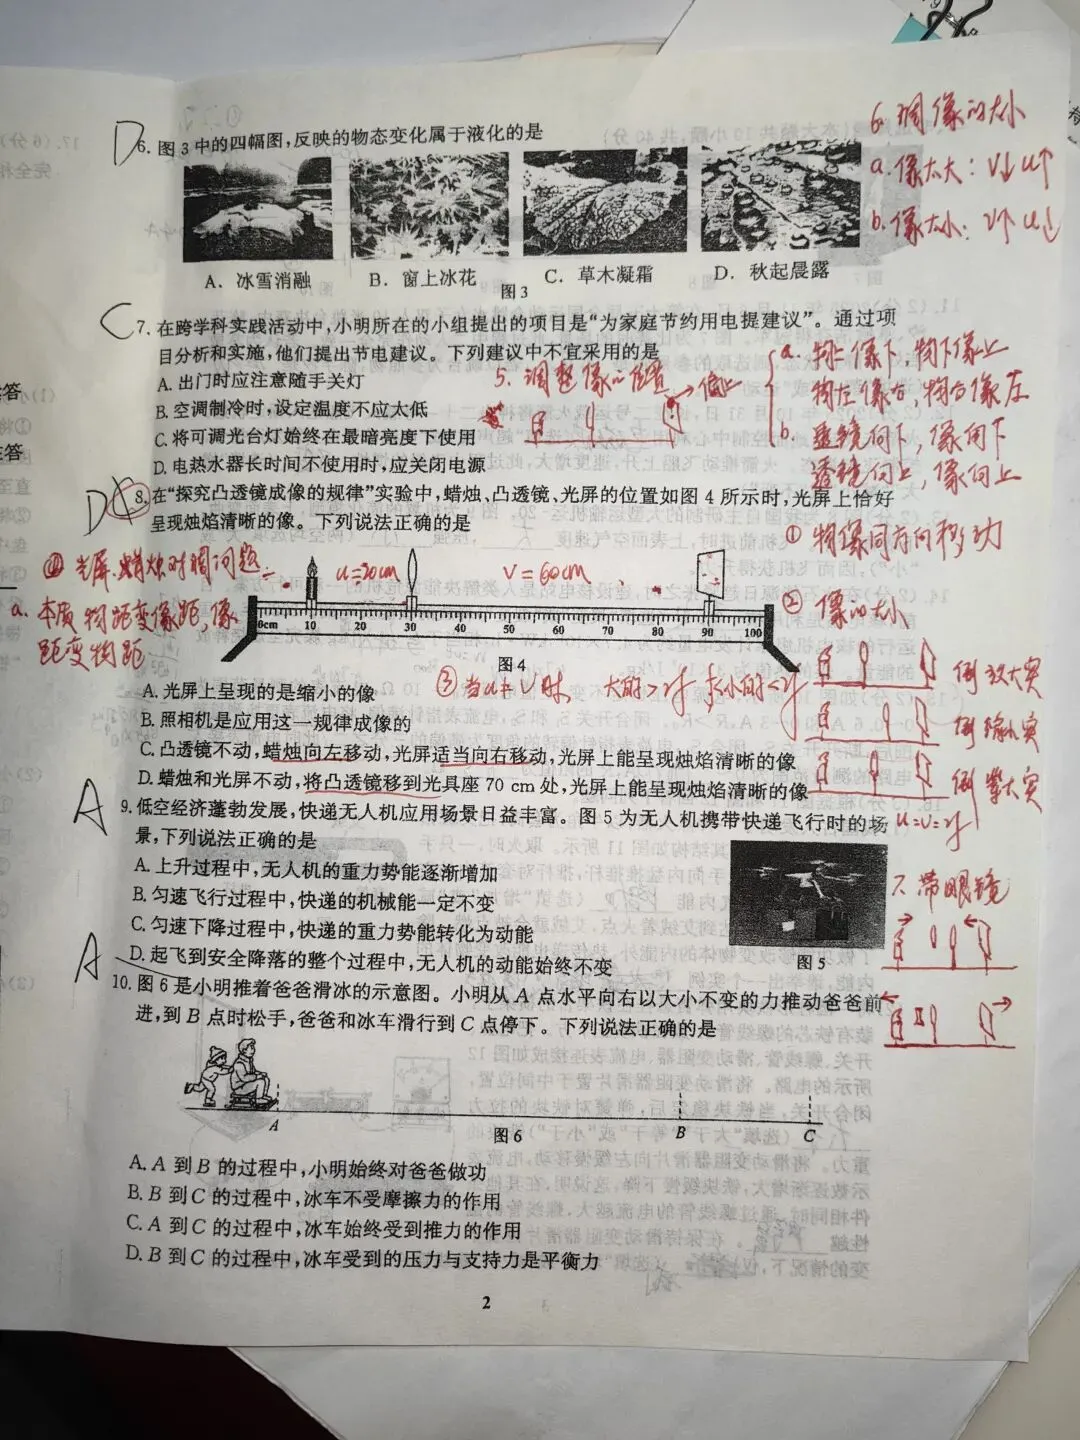 D
6. 图3中的四幅图,反映的物态变化属于液化的是
A. 冰雪消融
B. 窗上冰花
C. 草木凝霜
D. 秋起晨露
图3
C
7. 在跨学科实践活动中,小明所在的小组提出的项目是“为家庭节约用电提建议”。通过项
目分析和实施,他们提出节电建议。下列建议中不宜采用的是
A. 出门时应注意随手关灯
B. 空调制冷时,设定温度不应太低
C. 将可调光台灯始终在最暗亮度下使用
D. 电热水器长时间不使用时,应关闭电源
D
8. 在“探究凸透镜成像的规律”实验中,蜡烛、凸透镜、光屏的位置如图4所示时,光屏上恰好
呈现烛焰清晰的像。下列说法正确的是
u=20cm
V=60cm
0cm 10 20 30 40 50 60 70 80 90 100
图4
A. 光屏上呈现的是缩小的像
B. 照相机是应用这一规律成像的
C. 凸透镜不动,蜡烛向左移动,光屏适当向右移动,光屏上能呈现烛焰清晰的像
D. 蜡烛和光屏不动,将凸透镜移到光具座70 cm处,光屏上能呈现烛焰清晰的像
A
9. 低空经济蓬勃发展,快递无人机应用场景日益丰富。图5为无人机携带快递飞行时的场
景,下列说法正确的是
A. 上升过程中,无人机的重力势能逐渐增加
B. 匀速飞行过程中,快递的机械能一定不变
C. 匀速下降过程中,快递的重力势能转化为动能
D. 起飞到安全降落的整个过程中,无人机的动能始终不变
图5
A
10. 图6是小明推着爸爸滑冰的示意图。小明从A点水平向右以大小不变的力推动爸爸前
进,到B点时松手,爸爸和冰车滑行到C点停下。下列说法正确的是
A
B
C
图6
A. A到B的过程中,小明始终对爸爸做功
B. B到C的过程中,冰车不受摩擦力的作用
C. A到C的过程中,冰车始终受到推力的作用
D. B到C的过程中,冰车受到的压力与支持力是平衡力
2
6. 调像的大小
a. 像太大: V↓u↑
b. 像太小: V↑u↓
5. 调整像的位置
偏上
a. 物上像下,物下像上
物左像右,物右像左
b. 透镜向下,像向下
透镜向上,像向上
① 物像同方向移动
② 像的大小
倒放大实
倒缩小实
倒等大实
u=v=2f
③ 当u≠V时, 大的>2f 小的<2f
光屏.蜡烛对调问题
a. 本质 物距变像距,像
距变物距
7. 带眼镜